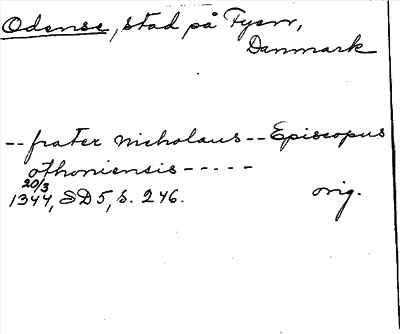 Odense, stad på Fyen,
Danmark
-- frater Nicholaus -- Episcopus
othoniensis -----
20/3
1344, SD5, s. 246. orig.